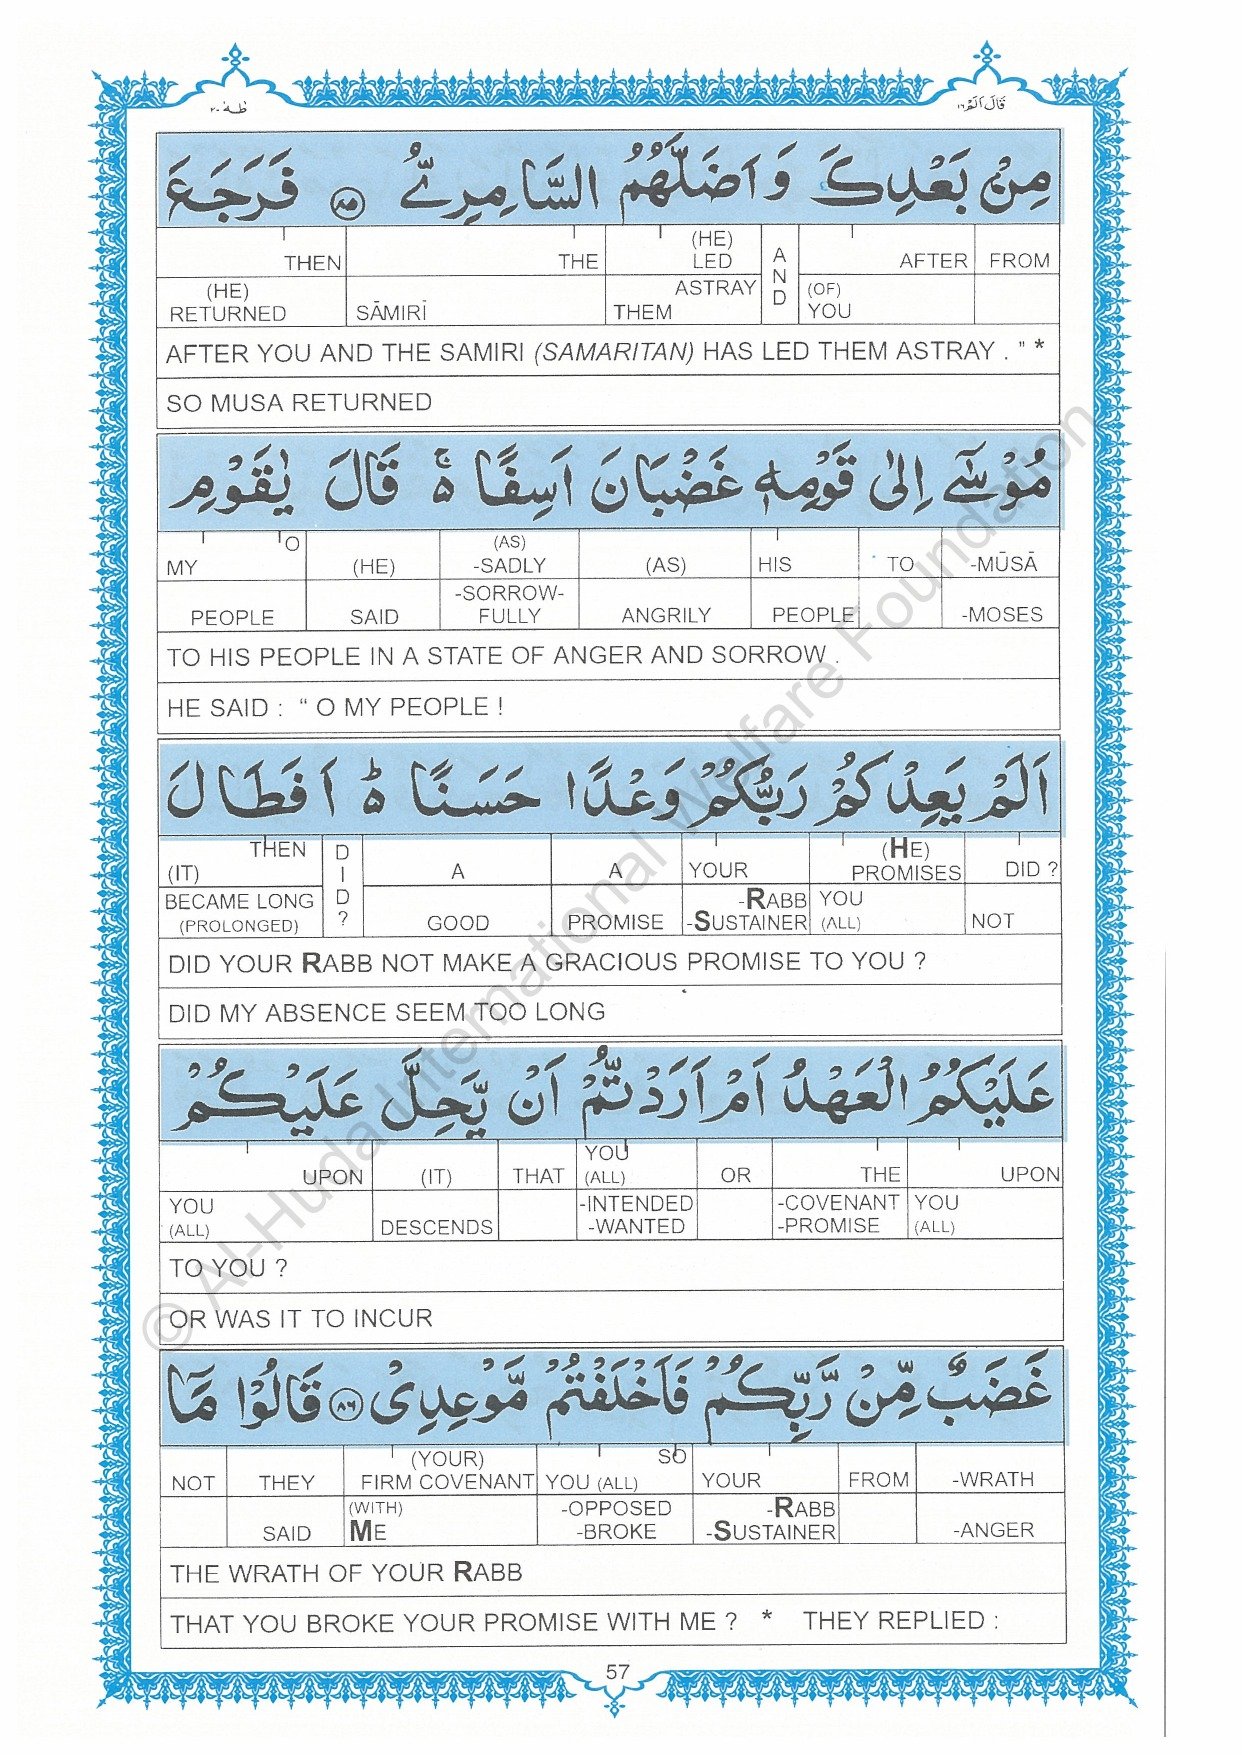 قَالَ اَلَمْ ١٦
طٰهٰ ٢٠
مِنْۢ بَعْدِكَ وَ اَضَلَّهُمُ السَّامِرِيُّ ۝٨٥ فَرَجَعَ
THEN THE (HE) LED A N D AFTER FROM
(HE) RETURNED SĀMIRĪ ASTRAY THEM (OF) YOU
AFTER YOU AND THE SAMIRI (SAMARITAN) HAS LED THEM ASTRAY . ” *
SO MUSA RETURNED
مُوْسٰٓى اِلٰى قَوْمِهٖ غَضْبَانَ اَسِفًا ۚ۬ قَالَ يٰقَوْمِ
MY O (HE) (AS) -SADLY (AS) HIS TO -MŪSĀ
PEOPLE SAID -SORROW- FULLY ANGRILY PEOPLE -MOSES
TO HIS PEOPLE IN A STATE OF ANGER AND SORROW .
HE SAID : “ O MY PEOPLE !
اَلَمْ يَعِدْكُمْ رَبُّكُمْ وَعْدًا حَسَنًا ؕ۬ اَفَطَالَ
(IT) THEN D I D ? A A YOUR (HE) PROMISES DID ?
BECAME LONG (PROLONGED) GOOD PROMISE -RABB -SUSTAINER YOU (ALL) NOT
DID YOUR RABB NOT MAKE A GRACIOUS PROMISE TO YOU ?
DID MY ABSENCE SEEM TOO LONG
عَلَيْكُمُ الْعَهْدُ اَمْ اَرَدْتُّمْ اَنْ يَّحِلَّ عَلَيْكُمْ
UPON (IT) THAT YOU (ALL) OR THE UPON
YOU (ALL) DESCENDS -INTENDED -WANTED -COVENANT -PROMISE YOU (ALL)
TO YOU ?
OR WAS IT TO INCUR
غَضَبٌ مِّنْ رَّبِّكُمْ فَاَخْلَفْتُمْ مَّوْعِدِيْ ۝٨٦ قَالُوْا مَآ
NOT THEY (YOUR) FIRM COVENANT YOU (ALL) SO YOUR FROM -WRATH
SAID (WITH) ME -OPPOSED -BROKE -RABB -SUSTAINER -ANGER
THE WRATH OF YOUR RABB
THAT YOU BROKE YOUR PROMISE WITH ME ? * THEY REPLIED :
57
© Al-Huda International Welfare Foundation